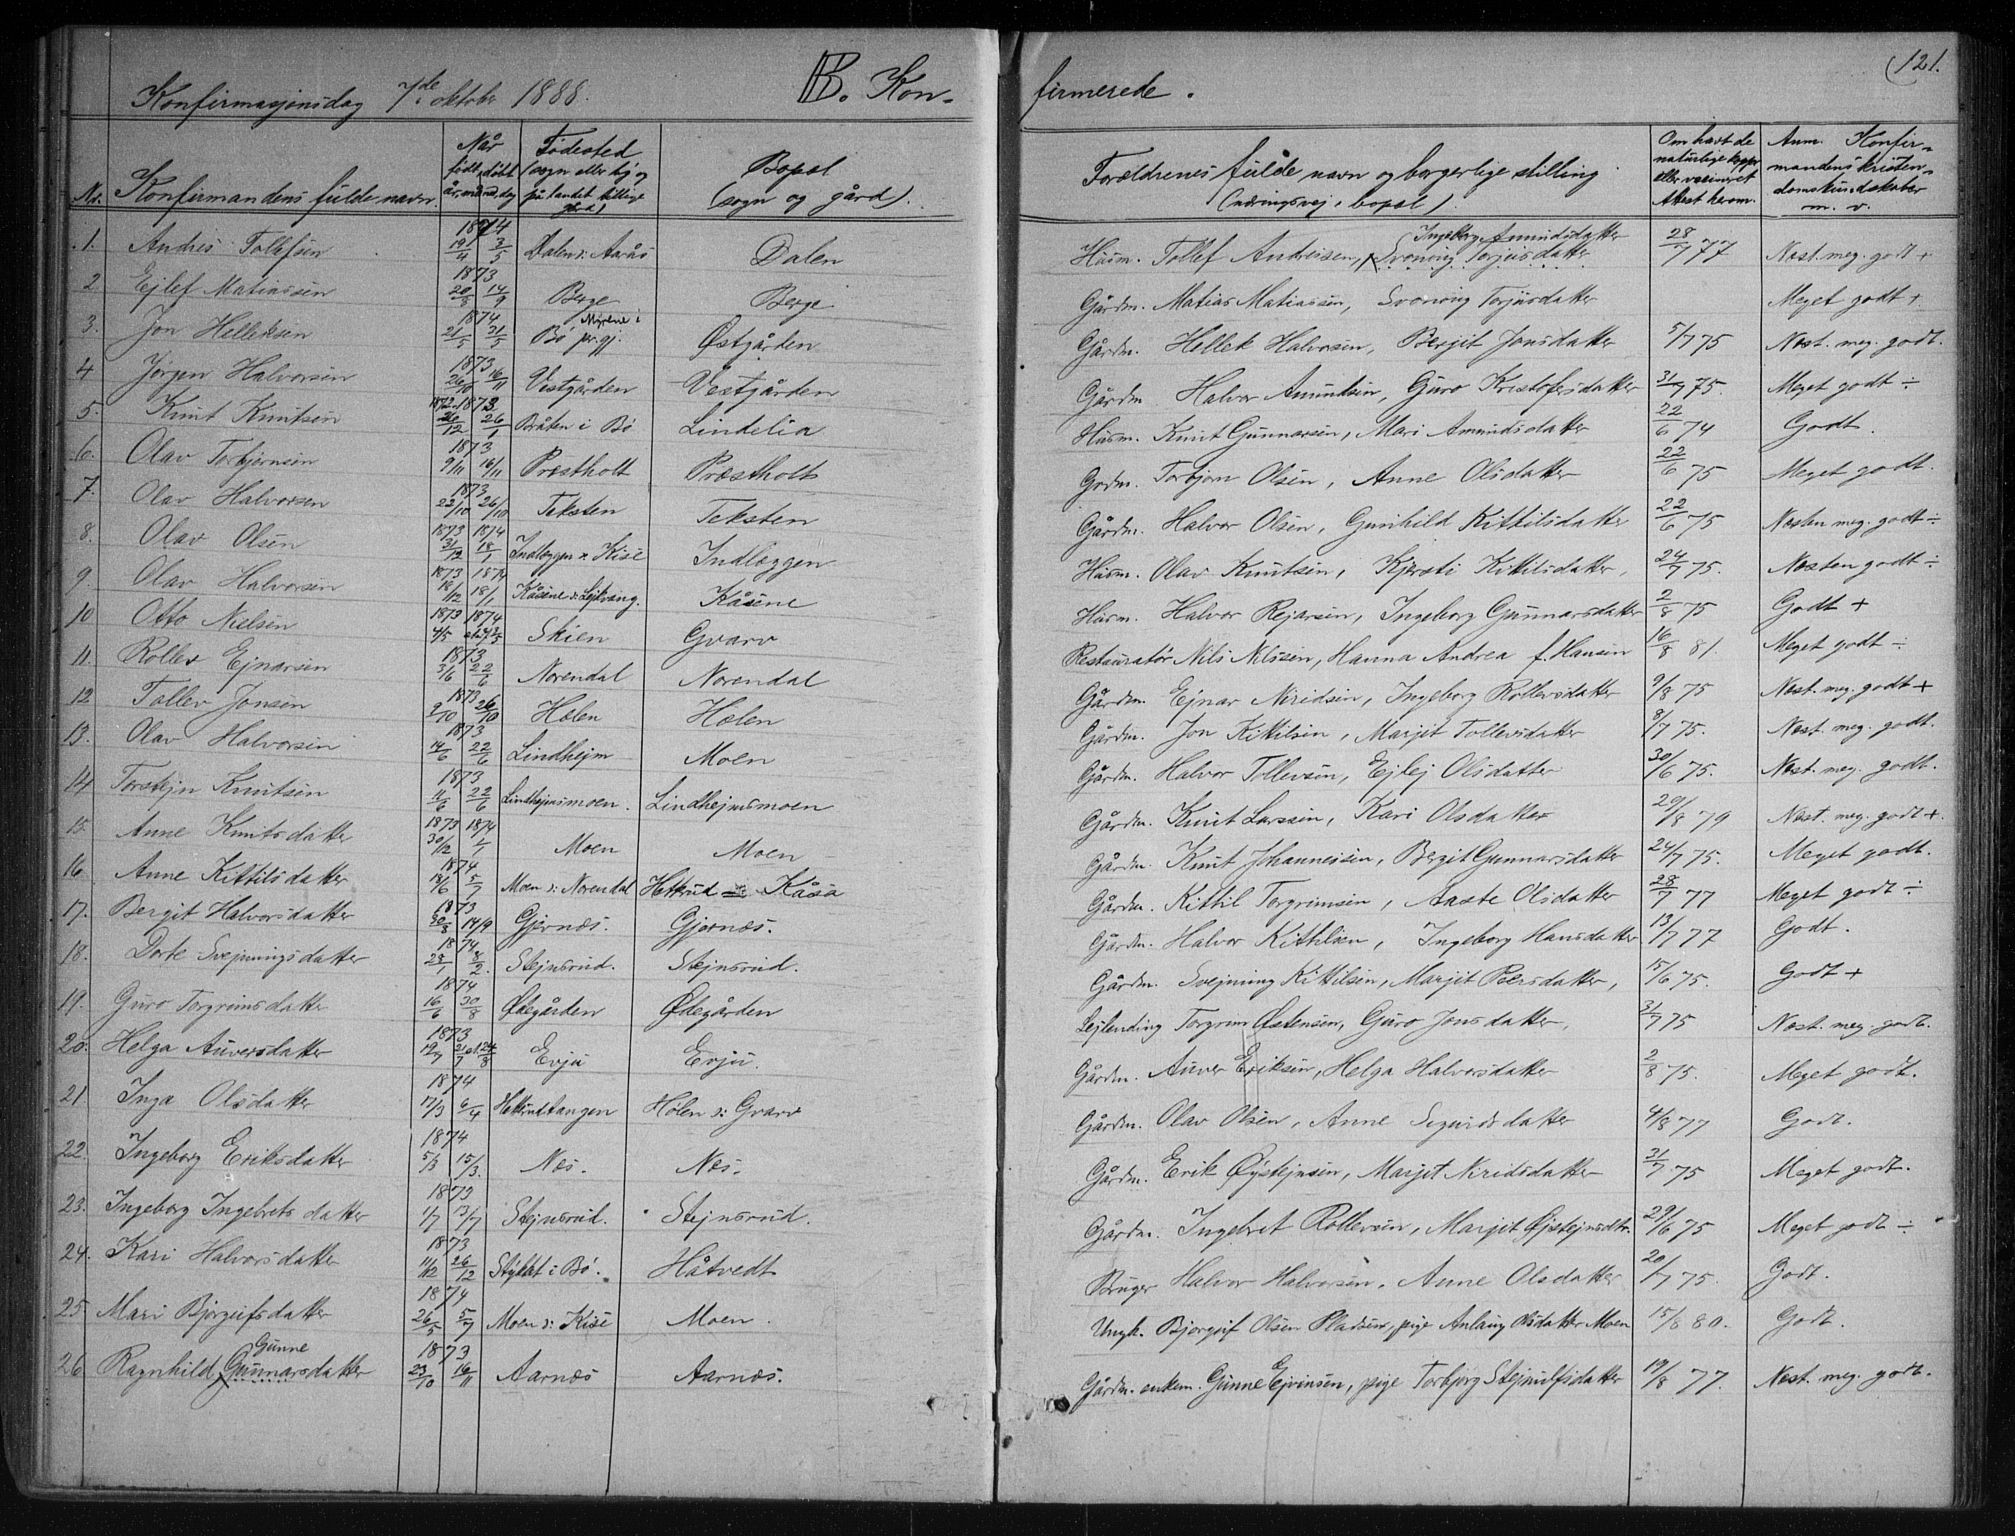 121.
Konfirmasjonsdag 7de oktober 1888. B. Kon-firmerede.
Nr. Konfirmandens fulde navn. Når født, døbt år, måned, dag Fødested (sogn eller by og på landet tillige gård) Bopæl (sogn og gård). Forældrenes fulde navn og borgerlige stilling (næringsvej, bopæl) Om havt de naturlige kopper eller vaccineret Attest herom. Anm. Konfirmandens kristendomskundskaber m. v.
1. Andres Tollefsen 1874 19/4 3/5 Dalen u. Aarås Dalen Husm. Tollef Andreisen, Ingeborg Amundsdatter Svanaug Torjusdatter 28/7 77 Næst. meg. godt +
2 Ejlef Matiassen 1873 20/8 14/9 Berge Berge Gårdm. Matias Matiassen, Svanaug Torjusdatter Meget godt +
3. Jon Helleksen 1874 21/5 31/5 Myrene i Bø pr.gj. Østgården Gårdm. Hellek Halvorsen, Bergit Jonsdatter 5/7 75 Næst. meg. godt.
4 Jørgen Halvorsen 1873 26/10 16/11 Vestgården Vestgården Gårdm Halvor Amundsen, Guro Kristofersdatter 31/7 75. Meget godt ÷
5. Knut Knutsen 1872 1873 26/12 26/1 Bråten i Bø Lindelia Husm. Knut Gunnarsen, Mari Amundsdatter 22/6 74 Godt.
6. Olav Torbjørnsen 1873 9/11 16/11 Præstholt Præstholt Gårdm. Torbjørn Olsen, Anne Olsdatter 22/6 75 Meget godt.
7. Olav Halvorsen 1873 22/10 26/10 Teksten Teksten Gårdm. Halvor Olsen, Gunhild Kittilsdatter 22/6 75 Næsten meg. godt ÷
8. Olav Olsen 1873 1874 31/12 18/1 Indlæggen u. Kise Indlæggen Husm. Olav Knutsen, Kjersti Kittilsdatter, 24/7 75. Næsten godt ÷
9. Olav Halvorsen 1873 1874 18/12 18/1 Kåsene u. Lejkvang. Kåsene Husm. Halvor Rejarsen, Ingeborg Gunnarsdatter 2/8 75 Godt +
10 Otto Nielsen 1873 1874 4/5 Skien Gvarv Restauratør Nils Nilssen, Hanna Andrea f. Hansen 16/8 81. Meget godt ÷
11. Rollev Ejnarsen 1873 3/6 22/6 Norendal Norendal Gårdm. Ejnar Niridsen, Ingeborg Rollevsdatter 9/8 75 Næst. meg. godt +
12 Tollev Jonsen 1873 9/10 26/10 Hælen Hælen Gårdm. Jon Kittilsen, Margit Tollevsdatter 8/7 75. Næst. meg. godt.
13. Olav Halvorsen 1873 14/6 22/6 Lindhejm Moen Gårdm. Halvor Tollevsen, Ejlej Olsdatter 30/6 75. Næst. meg. godt.
14 Torstejn Knutsen 1873 11/6 22/6 Lindhejmsmoen. Lindhejmsmoen Gårdm. Knut Larssen, Kari Olsdatter 29/8 79 Næst. meg. godt +.
15. Anne Knutsdatter 1873 1874 30/12 1/1 Moen Moen Gårdm. Knut Johannessen, Bergit Gunnarsdatter 24/7 75. Meget godt.
16 Anne Kittilsdatter 1874 13/6 5/7 Moen u. Norendal Hetterud Kåsa Gårdm. Kittil Torgrimsen, Aaste Olsdatter 28/7 77 Meget godt ÷
17. Bergit Halvorsdatter 1873 30/8 14/9 Gjernæs. Gjernæs. Gårdm. Halvor Kittilsen, Ingeborg Hansdatter 13/7 77 Godt.
18. Dorte Svejnungsdatter 1874 28/1 8/2. Stejnsrud. Stejnsrud. Gårdm. Svejnung Kittilsen, Margit Persdatter, 15/6 75. Godt +
19. Guro Torgrimsdatter 1874 16/6 30/8 Ødegården Ødegården Lejlending Torgrim Østensen, Guro Jonsdatter, 31/7 75 Næst. meg. godt.
20. Helga Auversdatter 1873 19/7 21/7 24/8 Evju Evju. Gårdm. Auver Eriksen, Helga Halvorsdatter 2/8 75. Meget godt.
21 Inga Olsdatter 1874 17/3 6/4 Hetterudtangen Hølen u. Gvarv Gårdm. Olav Olsen, Anne Sigurdsdatter 4/8 77 Godt.
22. Ingeborg Eriksdatter 1874 5/3 15/3. Næs. Næs. Gårdm. Erik Øystejnsen, Margit Niridsdatter 31/7 75 Meget godt.
23. Ingeborg Ingebretsdatter 1873 1/7 13/7 Stejnsrud. Stejnsrud. Gårdm. Ingebret Rollevsen, Margit Øystejnsdtr. 29/6 75 Meget godt ÷
24. Kari Halvorsdatter 1873 11/12 26/12 Stykket i Bø. Håtvedt Bruger Halvor Halvorsen, Anne Olsdatter 20/7 75. Godt.
25. Mari Bjørgufsdatter 1874 26/5 5/7 Moen u. Kise Moen. Ungk. Bjørguf Olsen Pladsen, pige Anlaug Olsdatter Moen 15/8 80. Godt.
26 Ragnhild Gunne Gunnarsdatter 1873 23/10 16/11 Aarnæs Aarnæs. Gårdm. enkem. Gunne Ejvinsen, pige Torbjørg Stejnulfsdatter 19/8 77. Næst. meg. godt.